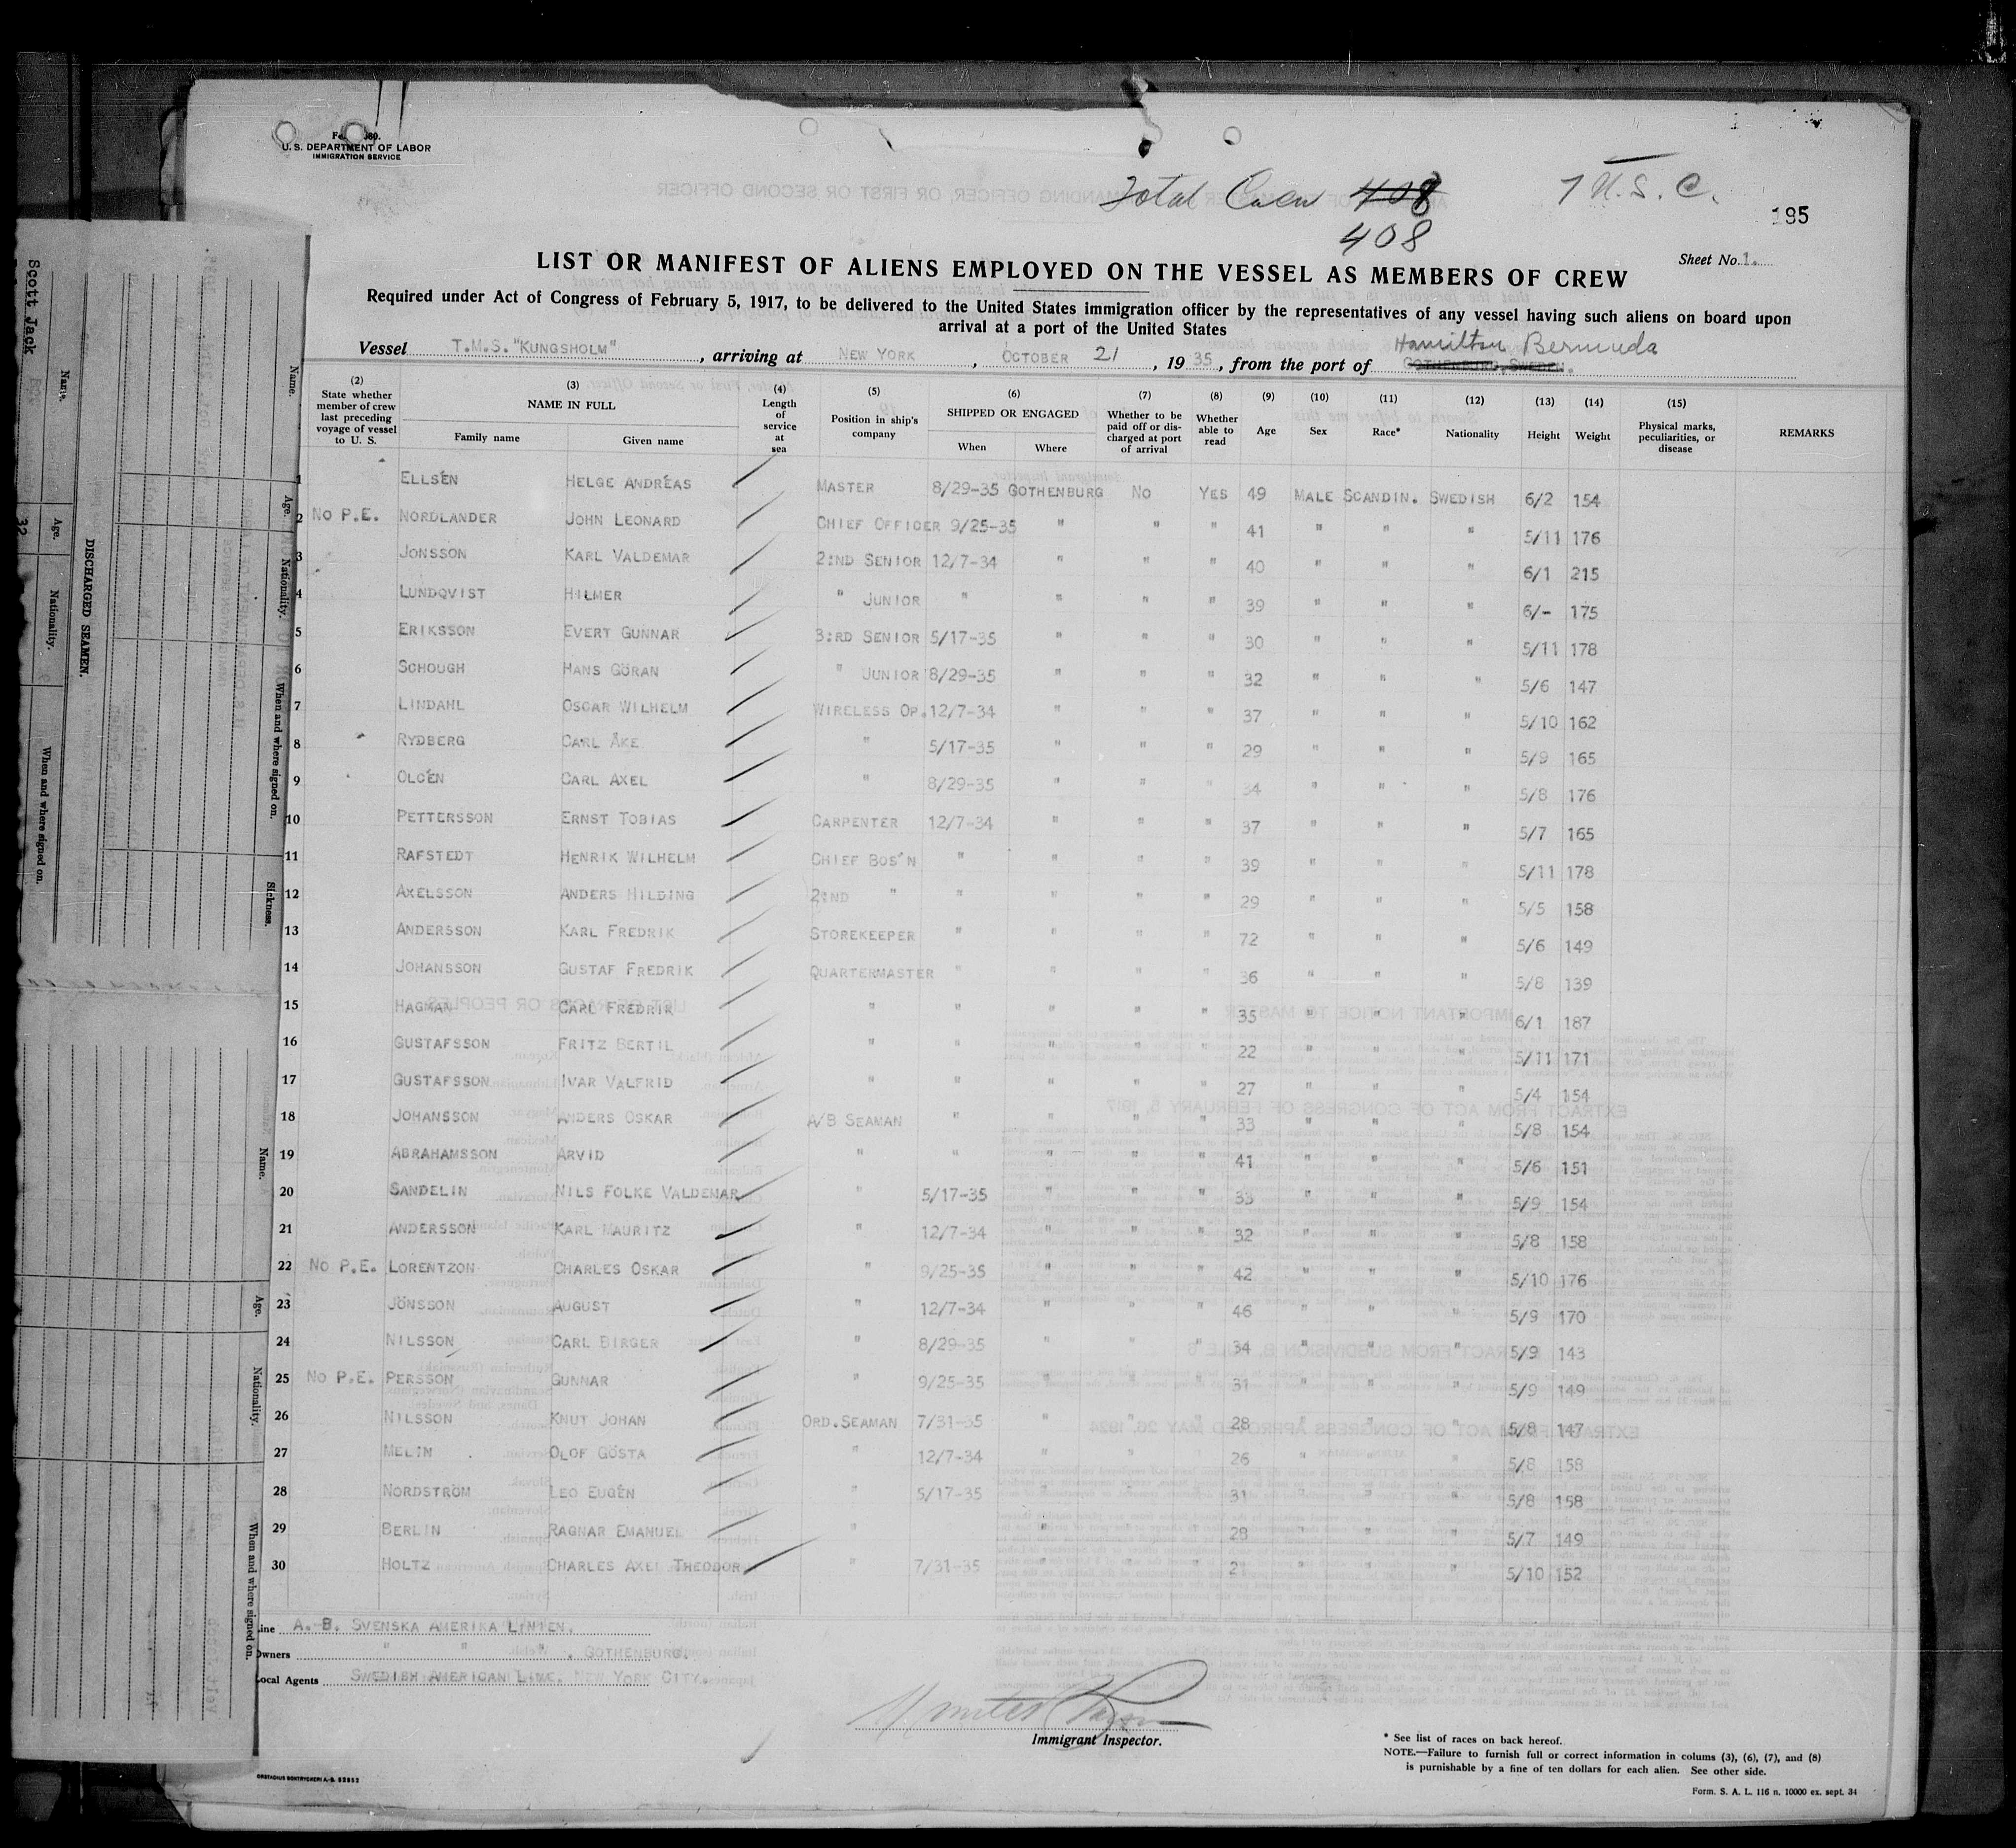 U. S. DEPARTMENT OF LABOR
IMMIGRATION SERVICE
Total Crew 408
408
7 U. S. C.
195
Sheet No. 1.
LIST OR MANIFEST OF ALIENS EMPLOYED ON THE VESSEL AS MEMBERS OF CREW
Required under Act of Congress of February 5, 1917, to be delivered to the United States immigration officer by the representatives of any vessel having such aliens on board upon
arrival at a port of the United States
Hamilton Bermuda
Vessel T.M.S. "KUNGSHOLM", arriving at NEW YORK, OCTOBER 21, 1935, from the port of GOTHENBURG, SWEDEN.
(2) State whether member of crew last preceding voyage of vessel to U. S.
(3) NAME IN FULL Family name Given name
(4) Length of service at sea
(5) Position in ship's company
(6) SHIPPED OR ENGAGED When Where
(7) Whether to be paid off or discharged at port of arrival
(8) Whether able to read
(9) Age
(10) Sex
(11) Race*
(12) Nationality
(13) Height
(14) Weight
(15) Physical marks, peculiarities, or disease
REMARKS
1 ELLSÉN HELGE ANDRÉAS MASTER 8/29-35 GOTHENBURG NO YES 49 MALE SCANDIN. SWEDISH 6/2 154
2 NO P.E. NORDLANDER JOHN LEONARD CHIEF OFFICER 9/25-35 " " " 41 " " " 5/11 176
3 JONSSON KARL VALDEMAR 2:ND SENIOR 12/7-34 " " " 40 " " " 6/1 215
4 LUNDQVIST HILMER " JUNIOR " " " " 39 " " " 6/- 175
5 ERIKSSON EVERT GUNNAR 3:RD SENIOR 5/17-35 " " " 30 " " " 5/11 178
6 SCHOUGH HANS GÖRAN " JUNIOR 8/29-35 " " " 32 " " " 5/6 147
7 LINDAHL OSCAR WILHELM WIRELESS OP. 12/7-34 " " " 37 " " " 5/10 162
8 RYDBERG CARL ÅKE " 5/17-35 " " " 29 " " " 5/9 165
9 OLCÉN CARL AXEL " 8/29-35 " " " 34 " " " 5/8 176
10 PETTERSSON ERNST TOBIAS CARPENTER 12/7-34 " " " 37 " " " 5/7 165
11 RAFSTEDT HENRIK WILHELM CHIEF BOS'N " " " " 39 " " " 5/11 178
12 AXELSSON ANDERS HILDING 2:ND " " " " " 29 " " " 5/5 158
13 ANDERSSON KARL FREDRIK STOREKEEPER " " " " 72 " " " 5/6 149
14 JOHANSSON GUSTAF FREDRIK QUARTERMASTER " " " " 36 " " " 5/8 139
15 HAGMAN CARL FREDRIK " " " " " 35 " " " 6/1 187
16 GUSTAFSSON FRITZ BERTIL " " " " " 22 " " " 5/11 171
17 GUSTAFSSON IVAR VALFRID " " " " " 27 " " " 5/4 154
18 JOHANSSON ANDERS OSKAR A/B SEAMAN " " " " 33 " " " 5/8 154
19 ABRAHAMSSON ARVID " " " " " 41 " " " 5/6 151
20 SANDELIN NILS FOLKE VALDEMAR " 5/17-35 " " " 33 " " " 5/9 154
21 ANDERSSON KARL MAURITZ " 12/7-34 " " " 32 " " " 5/8 158
22 NO P.E. LORENTZON CHARLES OSKAR " 9/25-35 " " " 42 " " " 5/10 176
23 JÖNSSON AUGUST " 12/7-34 " " " 46 " " " 5/9 170
24 NILSSON CARL BIRGER " 8/29-35 " " " 34 " " " 5/9 143
25 NO P.E. PERSSON GUNNAR " 9/25-35 " " " 31 " " " 5/9 149
26 NILSSON KNUT JOHAN ORD.SEAMAN 7/31-35 " " " 28 " " " 5/8 147
27 MELIN OLOF GÖSTA " 12/7-34 " " " 26 " " " 5/8 158
28 NORDSTRÖM LEO EUGÉN " 5/17-35 " " " 31 " " " 5/8 158
29 BERLIN RAGNAR EMANUEL " " " " 28 " " " 5/7 149
30 HOLTZ CHARLES AXEL THEODOR " 7/31-35 " " " " " " 5/10 152
Line A.-B. SVENSKA AMERIKA LINIEN.
Owners " " ". GOTHENBURG.
Local Agents SWEDISH AMERICAN LINE. NEW YORK CITY.
Immigrant Inspector.
* See list of races on back hereof.
NOTE.—Failure to furnish full or correct information in colums (3), (6), (7), and (8)
is purnishable by a fine of ten dollars for each alien. See other side.
Form. S. A. L. 116 n. 10000 ex. sept. 34
Scott Jack
32
DISCHARGED SEAMEN.
Name.
Age.
Nationality.
When and where signed on.
Name.
Age.
Nationality.
When and where signed on.
Sickness.
Name.
Age.
Nationality.
When and where signed on.